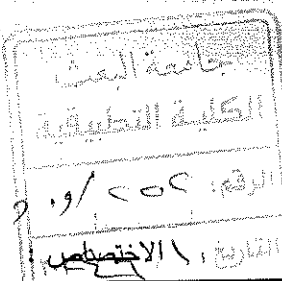 جامعة البعث
الكلية التطبيقية
الرقم: ٢٥٢ /و.
التاريخ: ١
الاختصاص: